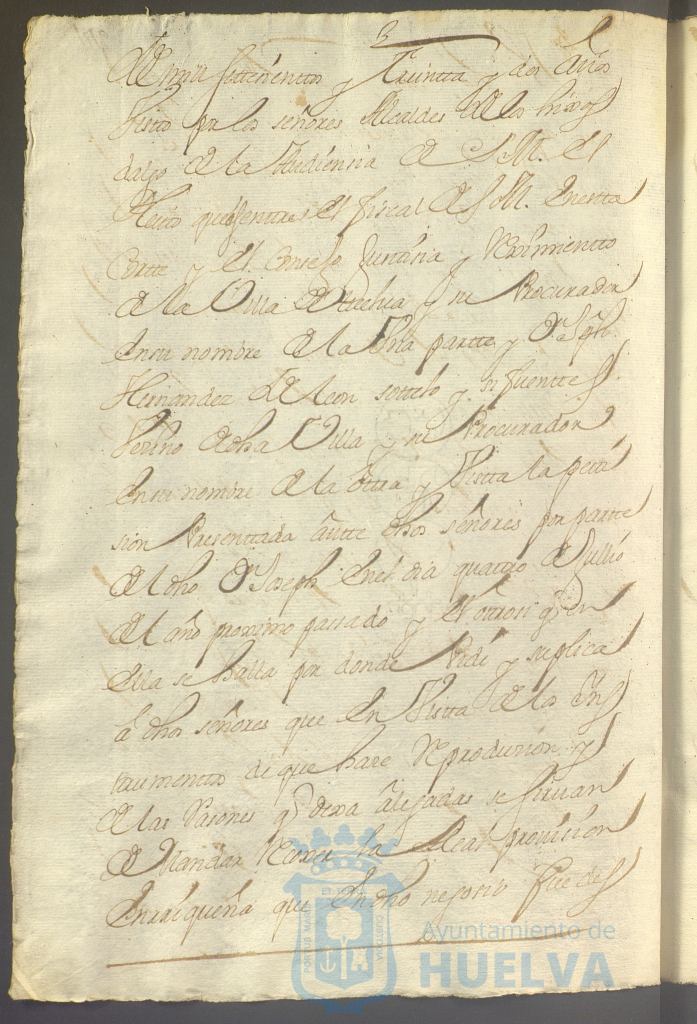 De mill settecientos y treintta y dos años
Visto por los señores Alcaldes de los hixos
dalgo de la Audiencia de S. M. el
Pleito que es entre el fiscal de S. M. en esta
Cortte y el Consejo Justisia y Reximientto
de la Villa de y su Procurador
en su nombre de la Una partte, y Dn Jph.
Hernandez de Leon sottelo y Sifuentes
Vesino de dha Villa y su Procurador
en su nombre de la ottra y Vistta la peti
sion Presenttada antte dhos señores por partte
del dho Dn Joseph en el dia quatro de Jullio
del año proximo passado y el ottrosi q en
ella se halla por donde Pide y suplica
a dhos señores que en Vistta de los Yns
trumenttos de que hace Reproduzion y
de las Rasones q dexa alegadas se sirvan
de Mandar la Real provision
enrriqueña que en dho negosio fue des
Ayuntamiento de
HUELVA